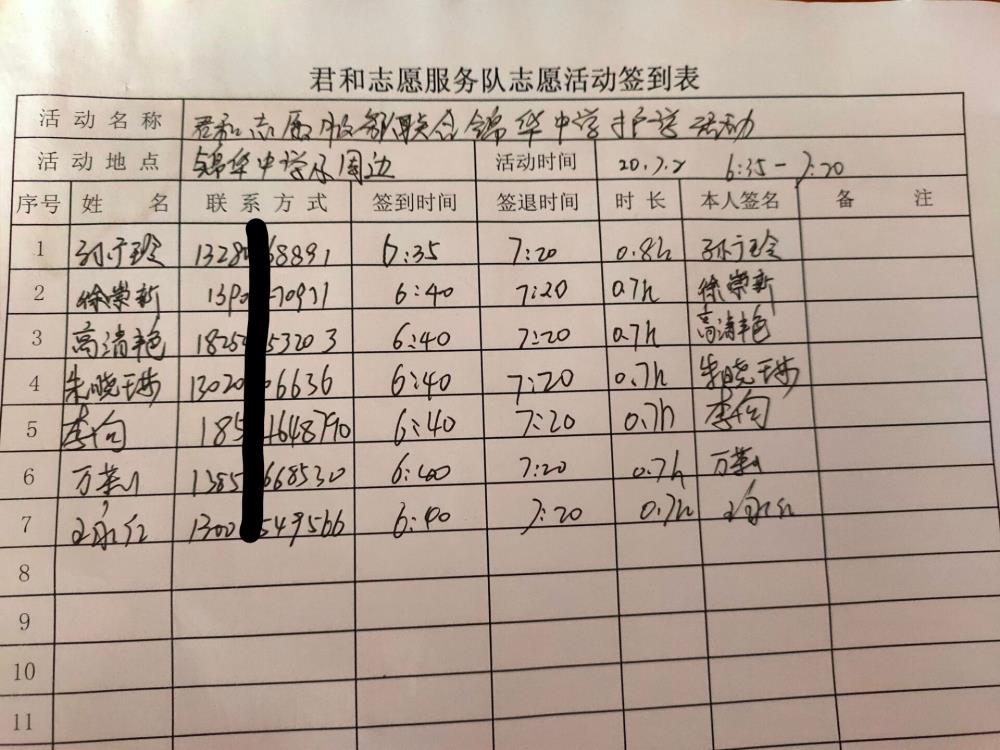 君和志愿服务队志愿活动签到表
活动名称 君和志愿服务队联合锦华中学护学活动
活动地点 锦华中学及周边 活动时间 20.7.2 6:35-7:20
序号 姓名 联系方式 签到时间 签退时间 时长 本人签名 备注
1 孙广玲 1328 68891 6:35 7:20 0.8h 孙广玲
2 徐崇新 1390 70971 6:40 7:20 0.7h 徐崇新
3 高清艳 1825 53203 6:40 7:20 0.7h 高清艳
4 朱晓玉 13020 6636 6:40 7:20 0.7h 朱晓玉
5 李均 185 4648790 6:40 7:20 0.7h 李均
6 1385 668530 6:40 7:20 0.7h
7 1300 549566 6:40 7:20 0.7h
8
9
10
11